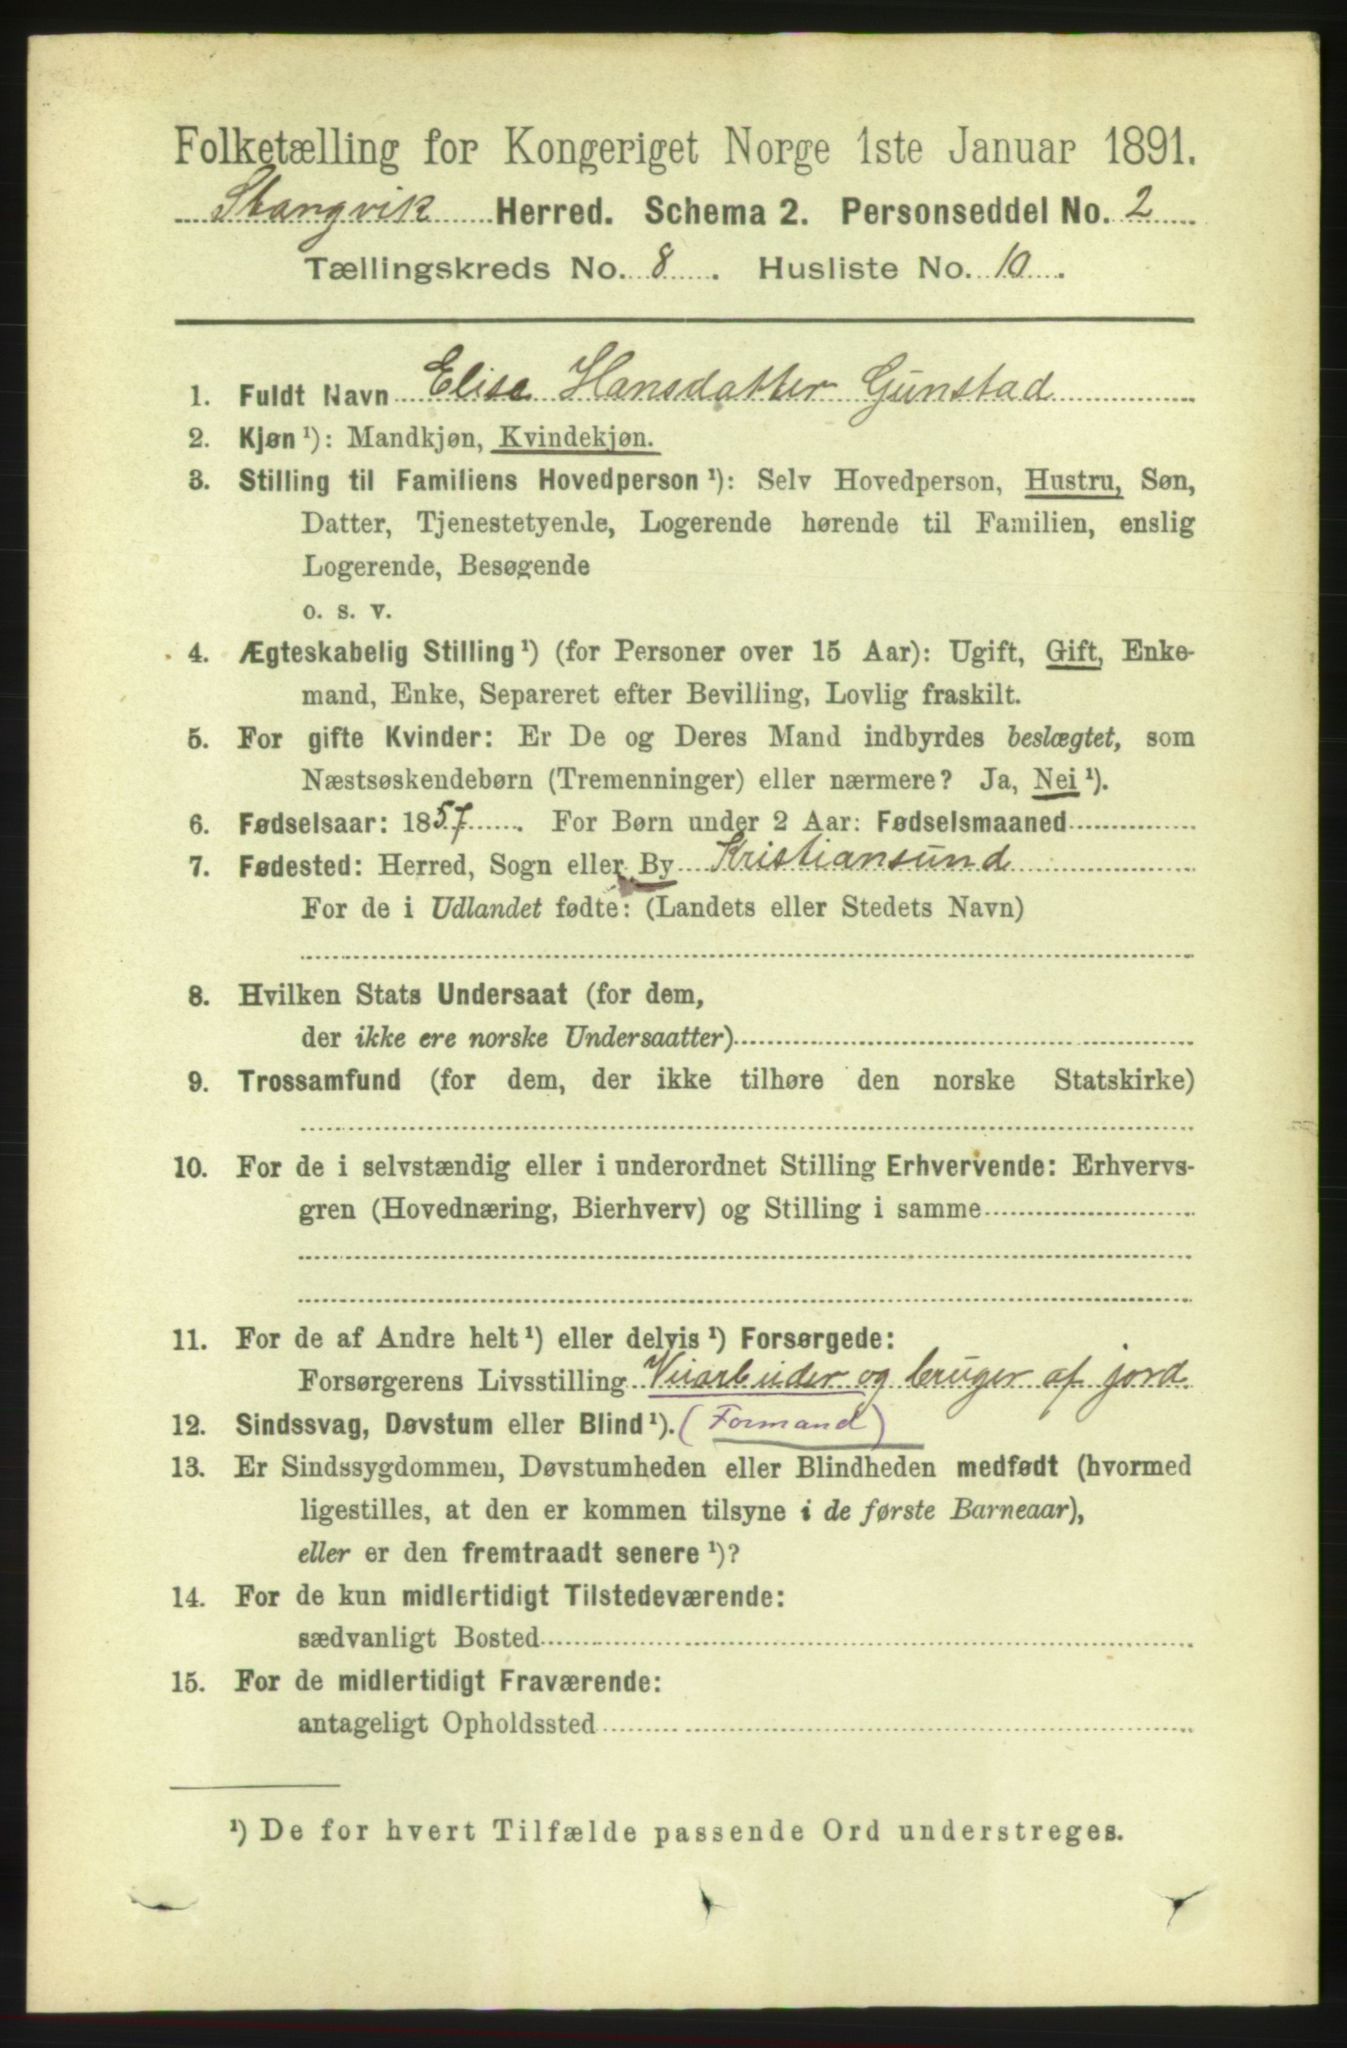 Folketælling for Kongeriget Norge 1ste Januar 1891.
Stangvik Herred. Schema 2. Personseddel No. 2
Tællingskreds No. 8. Husliste No. 10.
1. Fuldt Navn Elise Hansdatter Gunstad
2. Kjøn ¹): Mandkjøn, Kvindekjøn.
3. Stilling til Familiens Hovedperson ¹): Selv Hovedperson, Hustru, Søn,
Datter, Tjenestetyende, Logerende hørende til Familien, enslig
Logerende, Besøgende
o. s. v.
4. Ægteskabelig Stilling ¹) (for Personer over 15 Aar): Ugift, Gift, Enke-
mand, Enke, Separeret efter Bevilling, Lovlig fraskilt.
5. For gifte Kvinder: Er De og Deres Mand indbyrdes beslægtet, som
Næstsøskendebørn (Tremenninger) eller nærmere? Ja, Nei ¹).
6. Fødselsaar: 1857. For Børn under 2 Aar: Fødselsmaaned
7. Fødested: Herred, Sogn eller By Kristiansund
For de i Udlandet fødte: (Landets eller Stedets Navn)
8. Hvilken Stats Undersaat (for dem,
der ikke ere norske Undersaatter)
9. Trossamfund (for dem, der ikke tilhøre den norske Statskirke)
10. For de i selvstændig eller i underordnet Stilling Erhvervende: Erhvervs-
gren (Hovednæring, Bierhverv) og Stilling i samme
11. For de af Andre helt ¹) eller delvis ¹) Forsørgede:
Forsørgerens Livsstilling Veiarbeider og bruger af jord
12. Sindssvag, Døvstum eller Blind ¹). (Formand)
13. Er Sindssygdommen, Døvstumheden eller Blindheden medfødt (hvormed
ligestilles, at den er kommen tilsyne i de første Barneaar),
eller er den fremtraadt senere ¹)?
14. For de kun midlertidigt Tilstedeværende:
sædvanligt Bosted
15. For de midlertidigt Fraværende:
antageligt Opholdssted
¹) De for hvert Tilfælde passende Ord understreges.